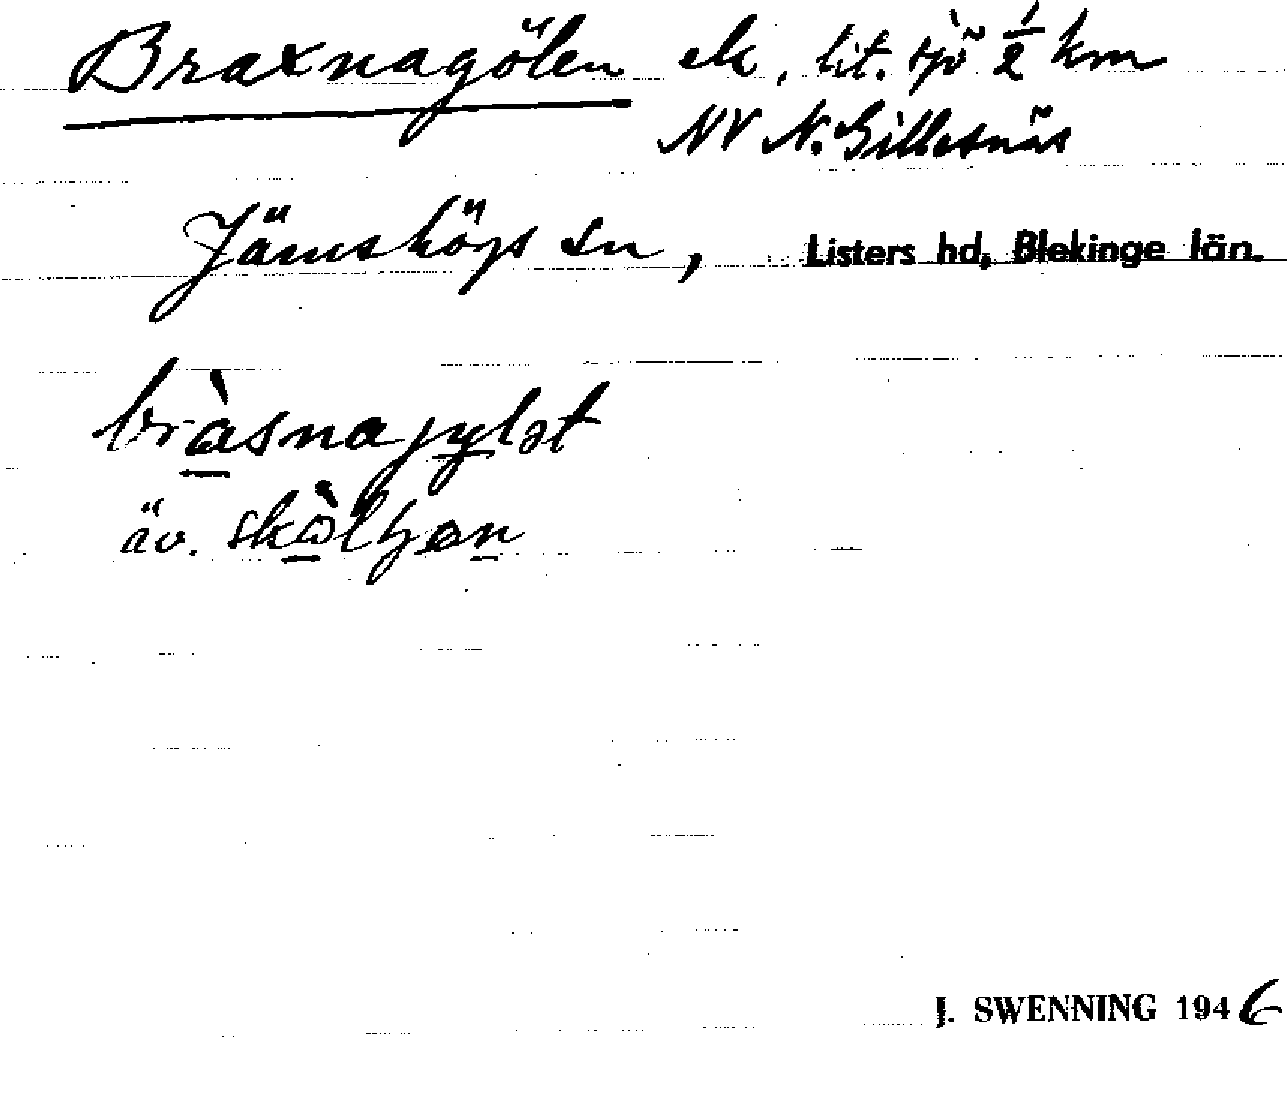 Braxnagölen ek, lit. sjö ½ km
NV N. Gillesnäs
Jämshögs sn, Listers hd, Blekinge län.
bràsnajylət
äv.
J. SWENNING 1946